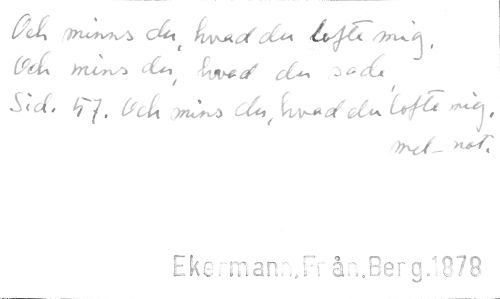 Och minns du, hvad du lofte mig,
Och mins du, hvad du sade,
Sid. 57. Och mins du, hvad du lofte mig.
mel-not.
Ekermann,Från,Berg.1878